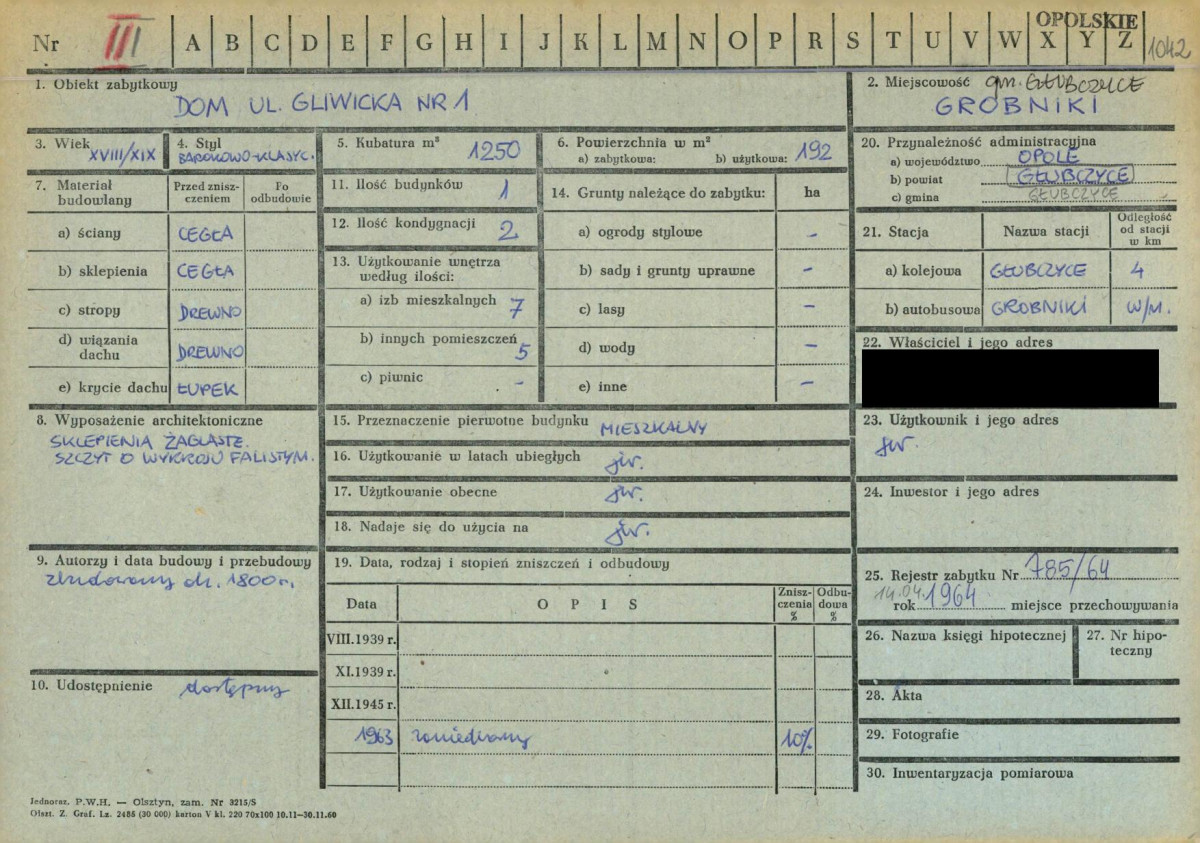 Nr III A B C D E F G H I J K L M N O P R S T U V W X Y Z
OPOLSKIE
1042
1. Obiekt zabytkowy
DOM UL. GLIWICKA NR 1
2. Miejscowość gm. GŁUBCZYCE
GROBNIKI
3. Wiek XVIII/XIX
4. Styl
BAROKOWO-KLASYC.
5. Kubatura m³ 1250
6. Powierzchnia w m²
a) zabytkowa: b) użytkowa: 192
7. Materiał budowlany
Przed znisz-
czeniem
Po
odbudowie
a) ściany CEGŁA
b) sklepienia CEGŁA
c) stropy DREWNO
d) wiązania
dachu DREWNO
e) krycie dachu ŁUPEK
8. Wyposażenie architektoniczne
SKLEPIENIA ŻAGLASTE.
SZCZYT O WYKROJU FALISTYM.
9. Autorzy i data budowy i przebudowy
zbudowany ok. 1800 r.
10. Udostępnienie dostępny
11. Ilość budynków 1
12. Ilość kondygnacji 2
13. Użytkowanie wnętrza
według ilości:
a) izb mieszkalnych 7
b) innych pomieszczeń 5
c) piwnic -
14. Grunty należące do zabytku: ha
a) ogrody stylowe -
b) sady i grunty uprawne -
c) lasy -
d) wody -
e) inne -
15. Przeznaczenie pierwotne budynku MIESZKALNY
16. Użytkowanie w latach ubiegłych jw.
17. Użytkowanie obecne jw.
18. Nadaje się do użycia na jw.
19. Data, rodzaj i stopień zniszczeń i odbudowy
Data
OPIS
Znisz-
czenia
%
Odbu-
dowa
%
VIII.1939 r.
XI.1939 r.
XII.1945 r.
1963 zaniedbany 10%
20. Przynależność administracyjna
a) województwo OPOLE
b) powiat GŁUBCZYCE
c) gmina GŁUBCZYCE
21. Stacja
Nazwa stacji
Odległość
od stacji
w km
a) kolejowa GŁUBCZYCE 4
b) autobusowa GROBNIKI W/M.
22. Właściciel i jego adres
23. Użytkownik i jego adres
jw.
24. Inwestor i jego adres
25. Rejestr zabytku Nr 785/64
14.04.
rok 1964 miejsce przechowywania
26. Nazwa księgi hipotecznej
27. Nr hipo-
teczny
28. Akta
29. Fotografie
30. Inwentaryzacja pomiarowa
Jednoraz. P.W.H. — Olsztyn, zam. Nr 3215/S
Olszt. Z. Graf. Lz. 2486 (30 000) karton V kl. 220 70x100 10.11—30.11.60